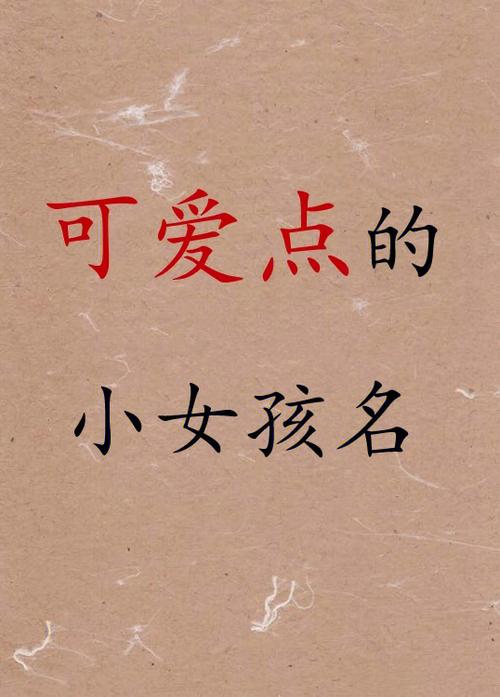 可爱点的
小女孩名